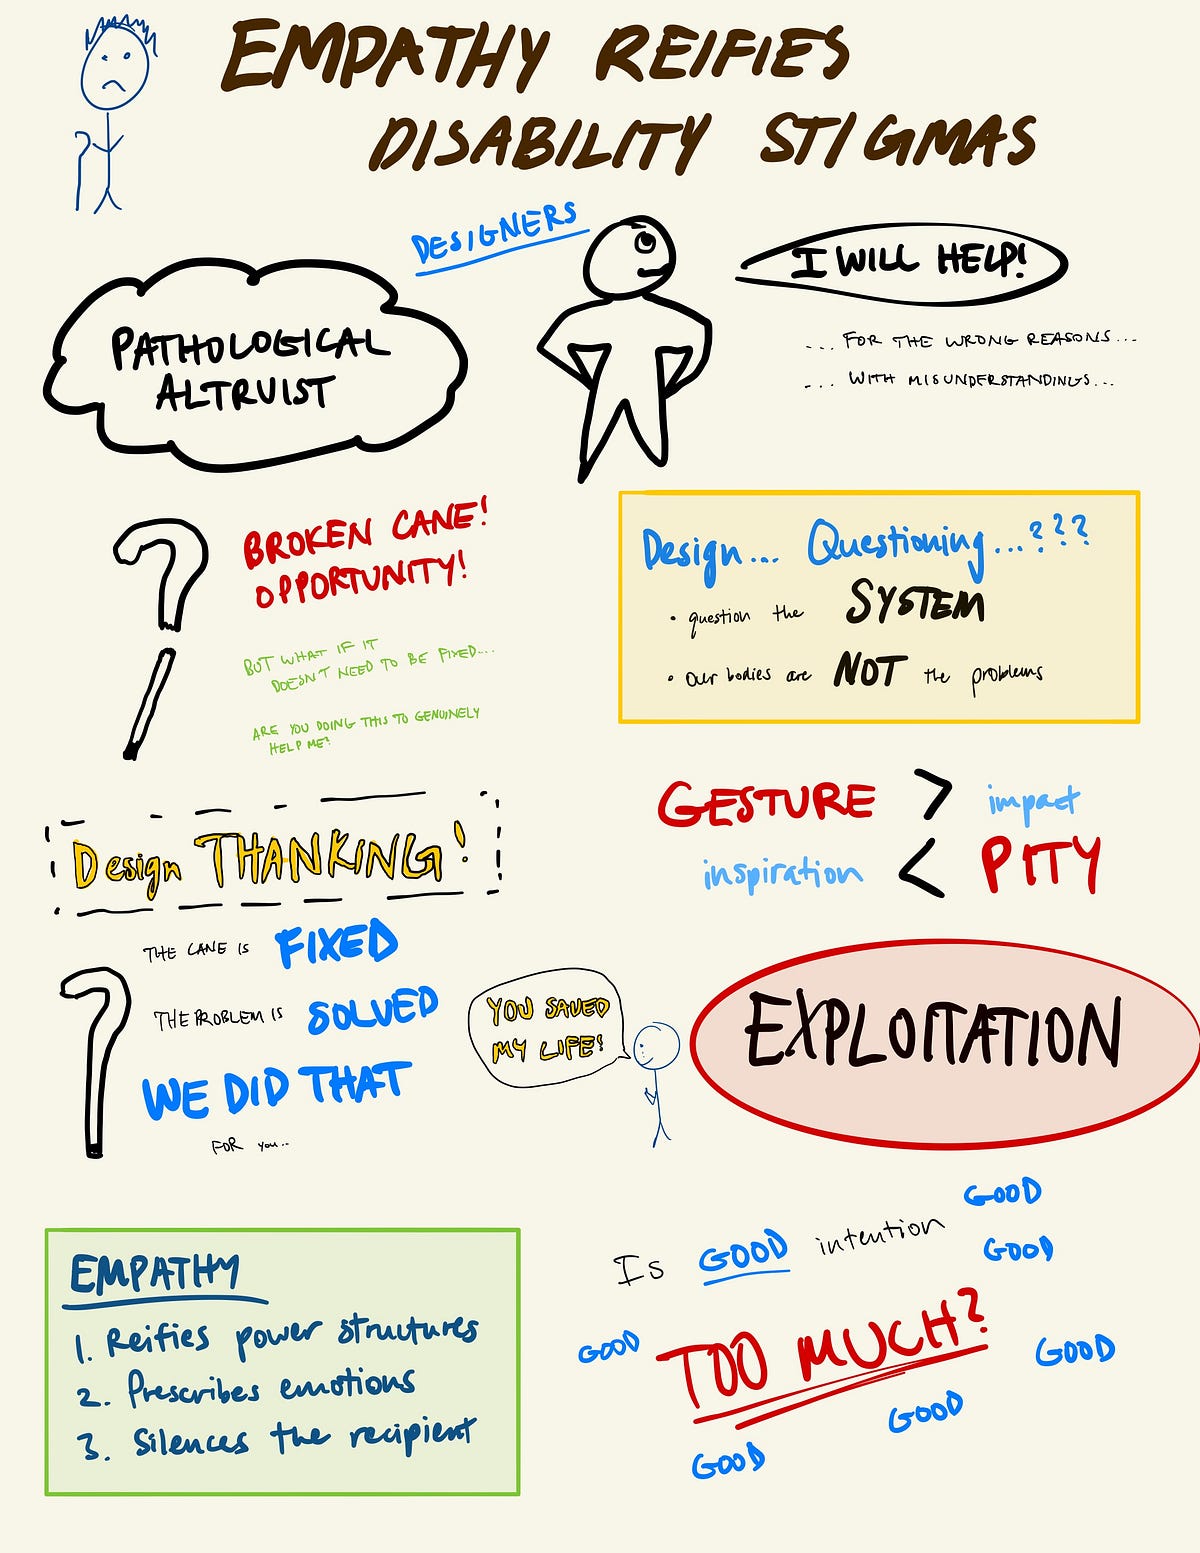 EMPATHY REIFIES
DISABILITY STIGMAS
DESIGNERS
I WILL HELP!
PATHOLOGICAL
ALTRUIST
... FOR THE WRONG REASONS...
... WITH MISUNDERSTANDINGS...
BROKEN CANE!
OPPORTUNITY!
BUT WHAT IF IT
DOESN'T NEED TO BE FIXED...
ARE YOU DOING THIS TO GENUINELY
HELP ME?
Design... Questioning...???
• question the SYSTEM
• Our bodies are NOT the problems
GESTURE > impact
inspiration < PITY
Design THANKING!
THE CANE IS FIXED
THE PROBLEM IS SOLVED
WE DID THAT
FOR you...
YOU SAVED
MY LIFE!
EXPLOITATION
EMPATHY
1. Reifies power structures
2. Prescribes emotions
3. Silences the recipient
Is GOOD intention
TOO MUCH?
GOOD
GOOD
GOOD
GOOD
GOOD
GOOD